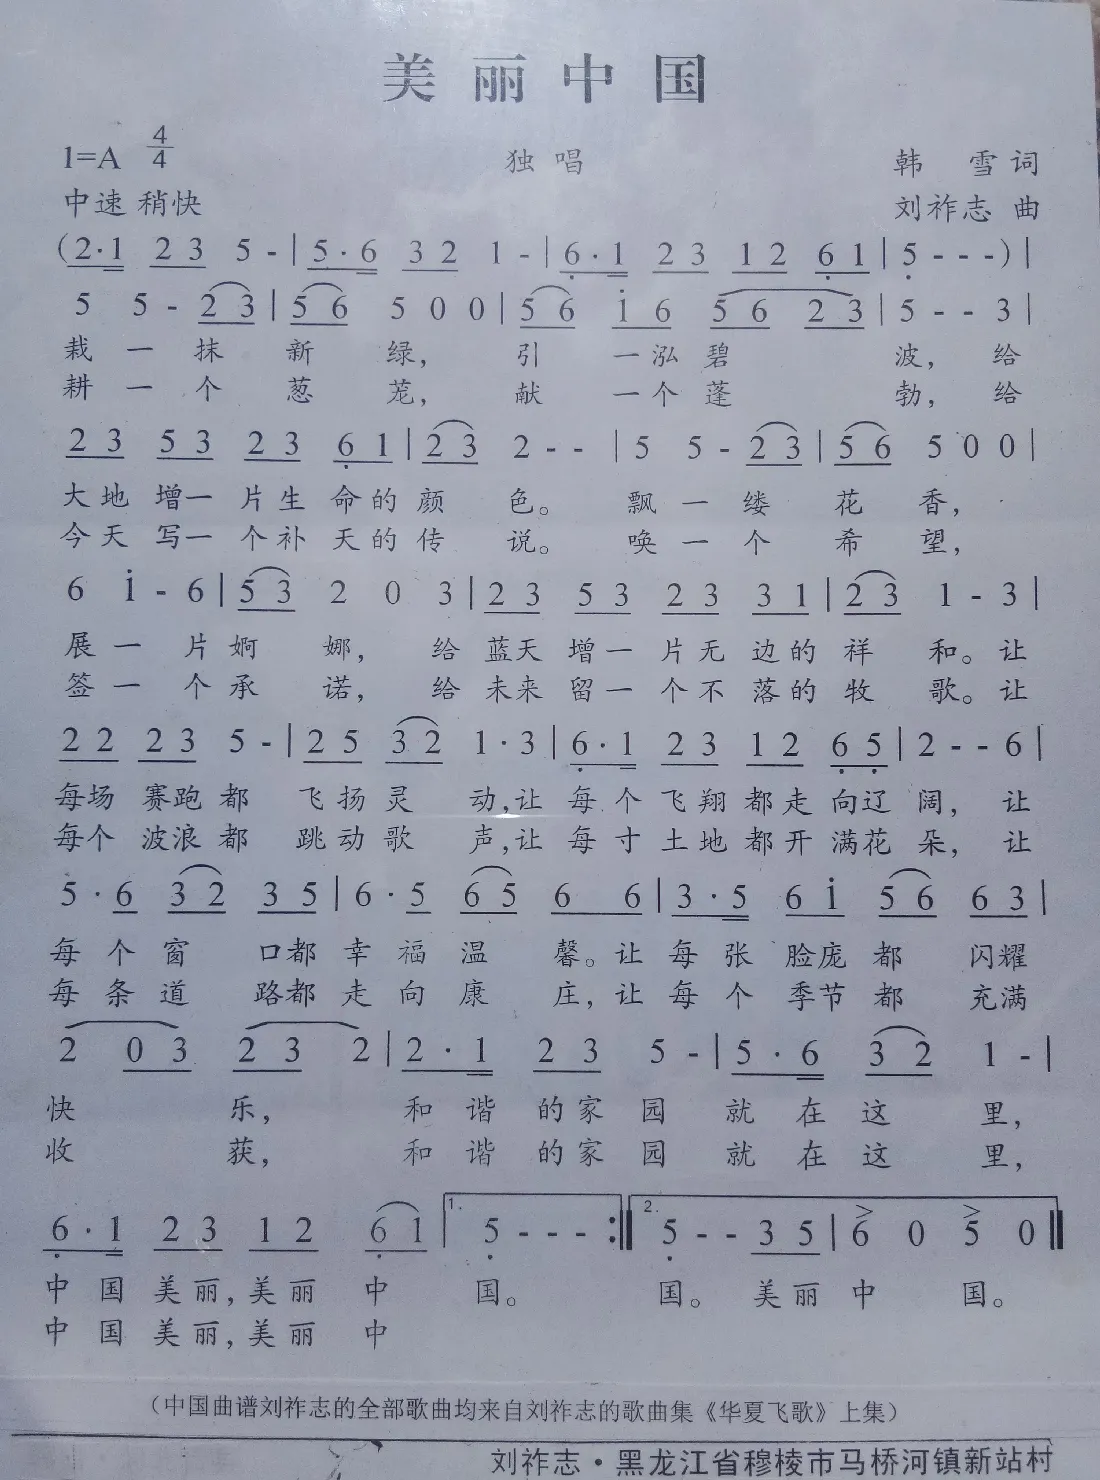 美丽中国
1=A 4/4 独唱 韩雪词
中速 稍快 刘祚志 曲
(2·1 2 3 5 - | 5·6 3 2 1 - | 6·1 2 3 1 2 6 1 | 5 - - -) |
5 5 - 2 3 | 5 6 5 0 0 | 5 6 i 6 5 6 2 3 | 5 - - 3 |
栽一抹新绿，引一泓碧波，给
耕一个葱茏，献一个蓬勃，给
2 3 5 3 2 3 6 1 | 2 3 2 - - | 5 5 - 2 3 | 5 6 5 0 0 |
大地增一片生命的颜色。飘一缕花香，
今天写一个补天的传说。唤一个希望，
6 i - 6 | 5 3 2 0 3 | 2 3 5 3 2 3 3 1 | 2 3 1 - 3 |
展一片婀娜，给蓝天增一片无边的祥和。让
签一个承诺，给未来留一个不落的牧歌。让
2 2 2 3 5 - | 2 5 3 2 1·3 | 6·1 2 3 1 2 6 5 | 2 - - 6 |
每场赛跑都飞扬灵动，让每个飞翔都走向辽阔，让
每个波浪都跳动歌声，让每寸土地都开满花朵，让
5·6 3 2 3 5 | 6·5 6 5 6 6 | 3·5 6 i 5 6 6 3 |
每个窗口都幸福温馨。让每张脸庞都闪耀
每条道路都走向康庄，让每个季节都充满
2 0 3 2 3 2 | 2·1 2 3 5 - | 5·6 3 2 1 - |
快乐，和谐的家园就在这里，
收获，和谐的家园就在这里，
6·1 2 3 1 2 6 1 | 1. 5 - - - :‖ 2. 5 - - 3 5 | 6 0 5 0 ‖
中国美丽，美丽中国。国。美丽中国。
中国美丽，美丽中
（中国曲谱刘祚志的全部歌曲均来自刘祚志的歌曲集《华夏飞歌》上集）
刘祚志·黑龙江省穆棱市马桥河镇新站村